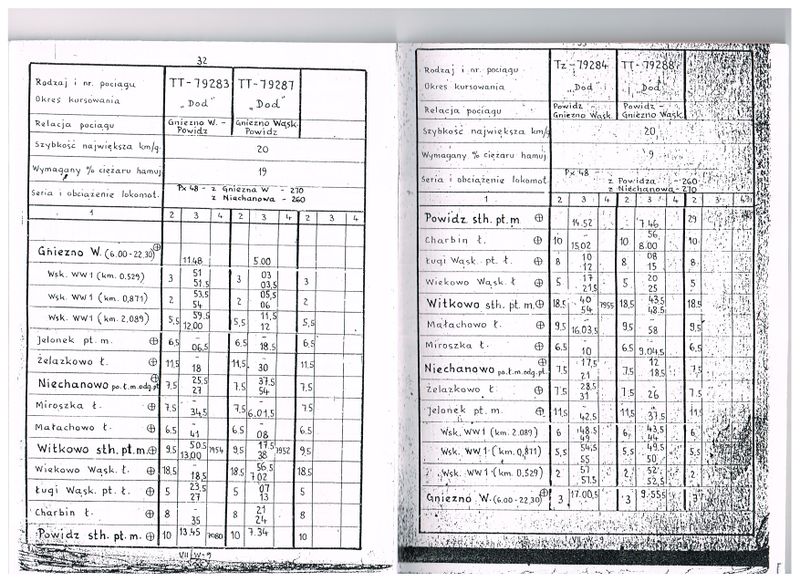 32
Rodzaj i nr. pociągu TT-79283 TT-79287
Okres kursowania „Dod" „Dod"
Relacja pociągu Gniezno W. - Powidz Gniezno Wąsk. Powidz
Szybkość największa km/g. 20
Wymagany % ciężaru hamuj. 19
Seria i obciążenie lokomot. Px 48 - z Gniezna W - 270
z Niechanowa - 260
1 2 3 4 2 3 4 2 3 4
Gniezno W. (6.00-22.30) ⊕ 11.48 5.00
Wsk. WW1 (km. 0.529) 3 51 51.5 3 03 03,5 3
Wsk. WW1 (km. 0,871) 2 53,5 54 2 05,5 06 2
Wsk. WW1 (km. 2.089) 5,5 59,5 12.00 5,5 11,5 12 5,5
Jelonek pt. m. ⊕ 6,5 - 06,5 6.5 - 18.5 6.5
Żelazkowo ł. ⊕ 11,5 - 18 11.5 - 30 11.5
Niechanowo po.ł.m.odg.pt. ⊕ 7.5 25,5 27 7.5 37.5 54 7.5
Miroszka ł. ⊕ 7.5 - 34,5 7,5 - 6.01,5 7.5
Małachowo ł. ⊕ 6.5 - 41 6.5 - 08 6.5
Witkowo sth. pt. m. ⊕ 9,5 50,5 13.00 1954 9,5 17,5 38 1952 9,5
Wiekowo Wąsk. ł. ⊕ 18,5 - 18,5 18.5 56.5 7.02 18.5
Ługi Wąsk. pt. ł. ⊕ 5 23,5 27 5 07 13 5
Charbin ł. ⊕ 8 - 35 8 21 24 8
Powidz sth. pt. m. ⊕ 10 13.45 1980 10 7.34 10
VII W-9
Rodzaj i nr. pociągu Tz-79284 TT-79288
Okres kursowania „Dod" „Dod"
Relacja pociągu Powidz - Gniezno Wąsk. Powidz - Gniezno Wąsk.
Szybkość największa km/g 20
Wymagany % ciężaru hamuj. 9
Seria i obciążenie lokomot. Px 48 z Powidza - 260
z Niechanowa - 270
1 2 3 4 2 3 4 2 3 4
Powidz sth. pt. m ⊕ 14.52 7.46 29
Charbin ł. ⊕ 10 - 15.02 10 56 8.00 10
Ługi Wąsk. pt. ł. ⊕ 8 10 12 8 08 15 8
Wiekowo Wąsk. ł ⊕ 5 17 21,5 5 20 25 5
Witkowo sth. pt. m. ⊕ 18.5 40 54 1955 18,5 43,5 48.5 18.5
Małachowo ł. ⊕ 9,5 - 16.03,5 9,5 - 58 9,5
Miroszka ł. ⊕ 6.5 - 10 6.5 - 9.04,5 6.5
Niechanowo po.ł.m.odg.pt. ⊕ 7.5 17,5 21 7.5 12 18.5 7.5
Żelazkowo ł. ⊕ 7.5 28.5 31 7.5 - 26 7.5
Jelonek pt. m. ⊕ 11,5 - 42.5 11,5 - 37.5 11,5
Wsk. WW1 (km. 2.089) 6 48.5 49 6 43,5 44 6
Wsk. WW1 (km. 0,871) 5,5 54,5 55 5,5 49.5 50 5,5
Wsk. WW1 (km. 0.529) 2 57 57.5 2 52 52,5 2
Gniezno W. (6.00-22.30) ⊕ 3 17.00,5 3 9.55,5 3